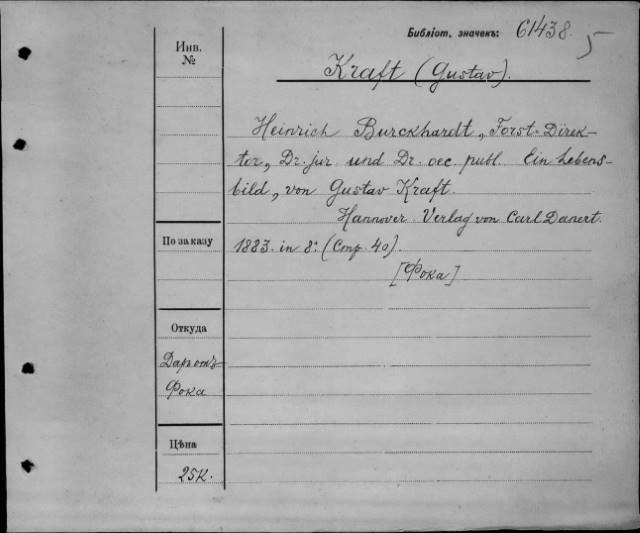 Библіот. значекъ: 61438. 5
Инв.
№
Kraft (Gustav).
Heinrich Burckhardt, Forst-Direk-
tor, Dr. jur. und Dr. oec. publ. Ein Lebens-
bild, von Gustav Kraft.
Hannover Verlag von Carl
По заказу
1883. in 8º. (Стр. 40).
[Фока]
Откуда
Даръ отъ
Фока
Цѣна
25к.